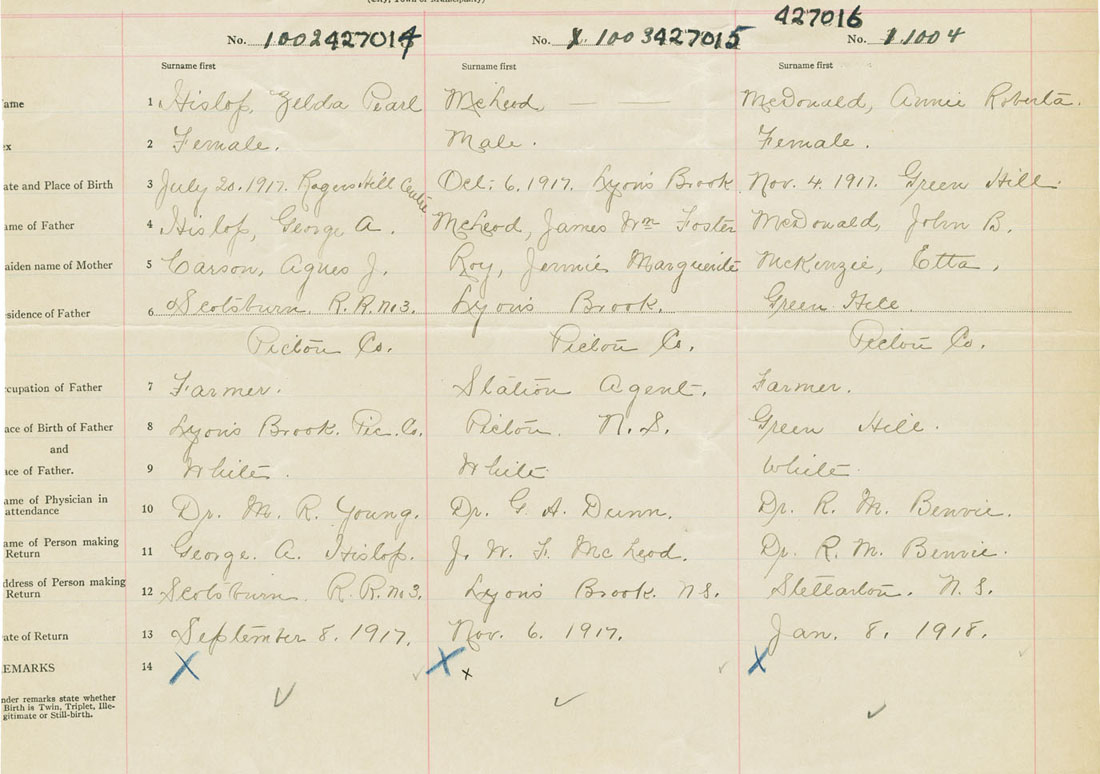 (City, Town or Municipality)
427016
No. 1002427014 No. 1003427015 No. 1004
Surname first Surname first Surname first
ame 1 Hislop, Zelda Pearl McLeod — — McDonald, Annie Roberta.
ex 2 Female. Male. Female.
ate and Place of Birth 3 July 20. 1917. Rogers Hill Centre Oct. 6, 1917. Lyon's Brook Nov. 4. 1917. Green Hill.
ame of Father 4 Hislop, George A. McLeod, James Wm Foster McDonald, John B.
aiden name of Mother 5 Carson, Agnes J. Roy, Jennie Marguerite McKenzie, Etta.
esidence of Father 6 Scotsburn. R.R. No 3. Lyon's Brook. Green Hill
Pictou Co. Pictou Co. Pictou Co.
ccupation of Father 7 Farmer. Station Agent. Farmer.
ace of Birth of Father 8 Lyon's Brook. Pic. Co. Pictou. N.S. Green Hill.
and
ace of Father. 9 White. White. White.
ame of Physician in attendance 10 Dr. M. R. Young. Dr. G. A. Dunn. Dr. R. M. Benvie.
ame of Person making Return 11 George. A. Hislop. J. W. F. McLeod. Dr. R. M. Benvie.
ddress of Person making Return 12 Scotsburn. R.R. No 3. Lyon's Brook. N.S. Stellarton. N.S.
ate of Return 13 September 8. 1917. Nov. 6. 1917. Jan. 8. 1918.
EMARKS 14 X X x X
nder remarks state whether
Birth is Twin, Triplet, Ille-
gitimate or Still-birth.